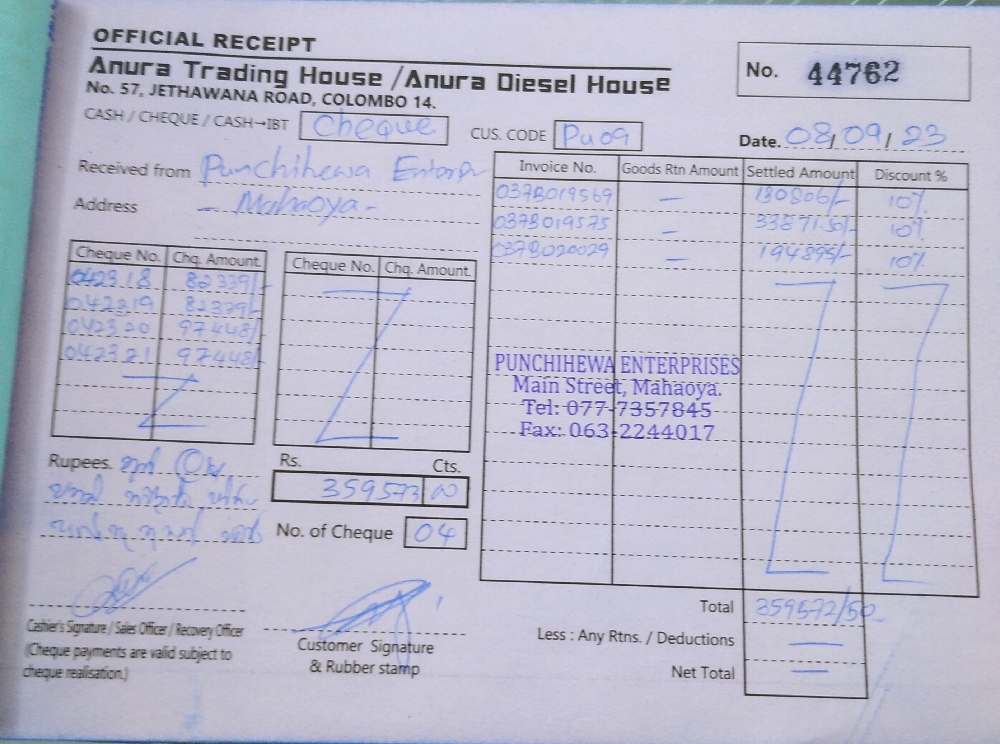 OFFICIAL RECEIPT
Anura Trading House / Anura Diesel House
No. 57, JETHAWANA ROAD, COLOMBO 14.
No. 44762
CASH / CHEQUE / CASH→IBT Cheque
CUS. CODE Pu09
Date. 08/09/23
Received from Punchihewa
Address - Mahaoya -
Invoice No. Goods Rtn Amount Settled Amount Discount %
037B019569 — 130806/- 10%
037B019575 — 33871.50/- 10%
037B020029 — 194895/- 10%
Cheque No. Chq. Amount.
042318 82339/-
042319 82339/-
042320 97448/-
042321 97448/-
Cheque No. Chq. Amount.
PUNCHIHEWA ENTERPRISES
Main Street, Mahaoya.
Tel: 077-7357845
Fax: 063-2244017
Rupees.
Rs. Cts.
359573 00
No. of Cheque 04
Total 359572/50
Less : Any Rtns. / Deductions —
Net Total —
Cashier's Signature / Sales Officer / Recovery Officer
(Cheque payments are valid subject to
cheque realisation.)
Customer Signature
& Rubber stamp